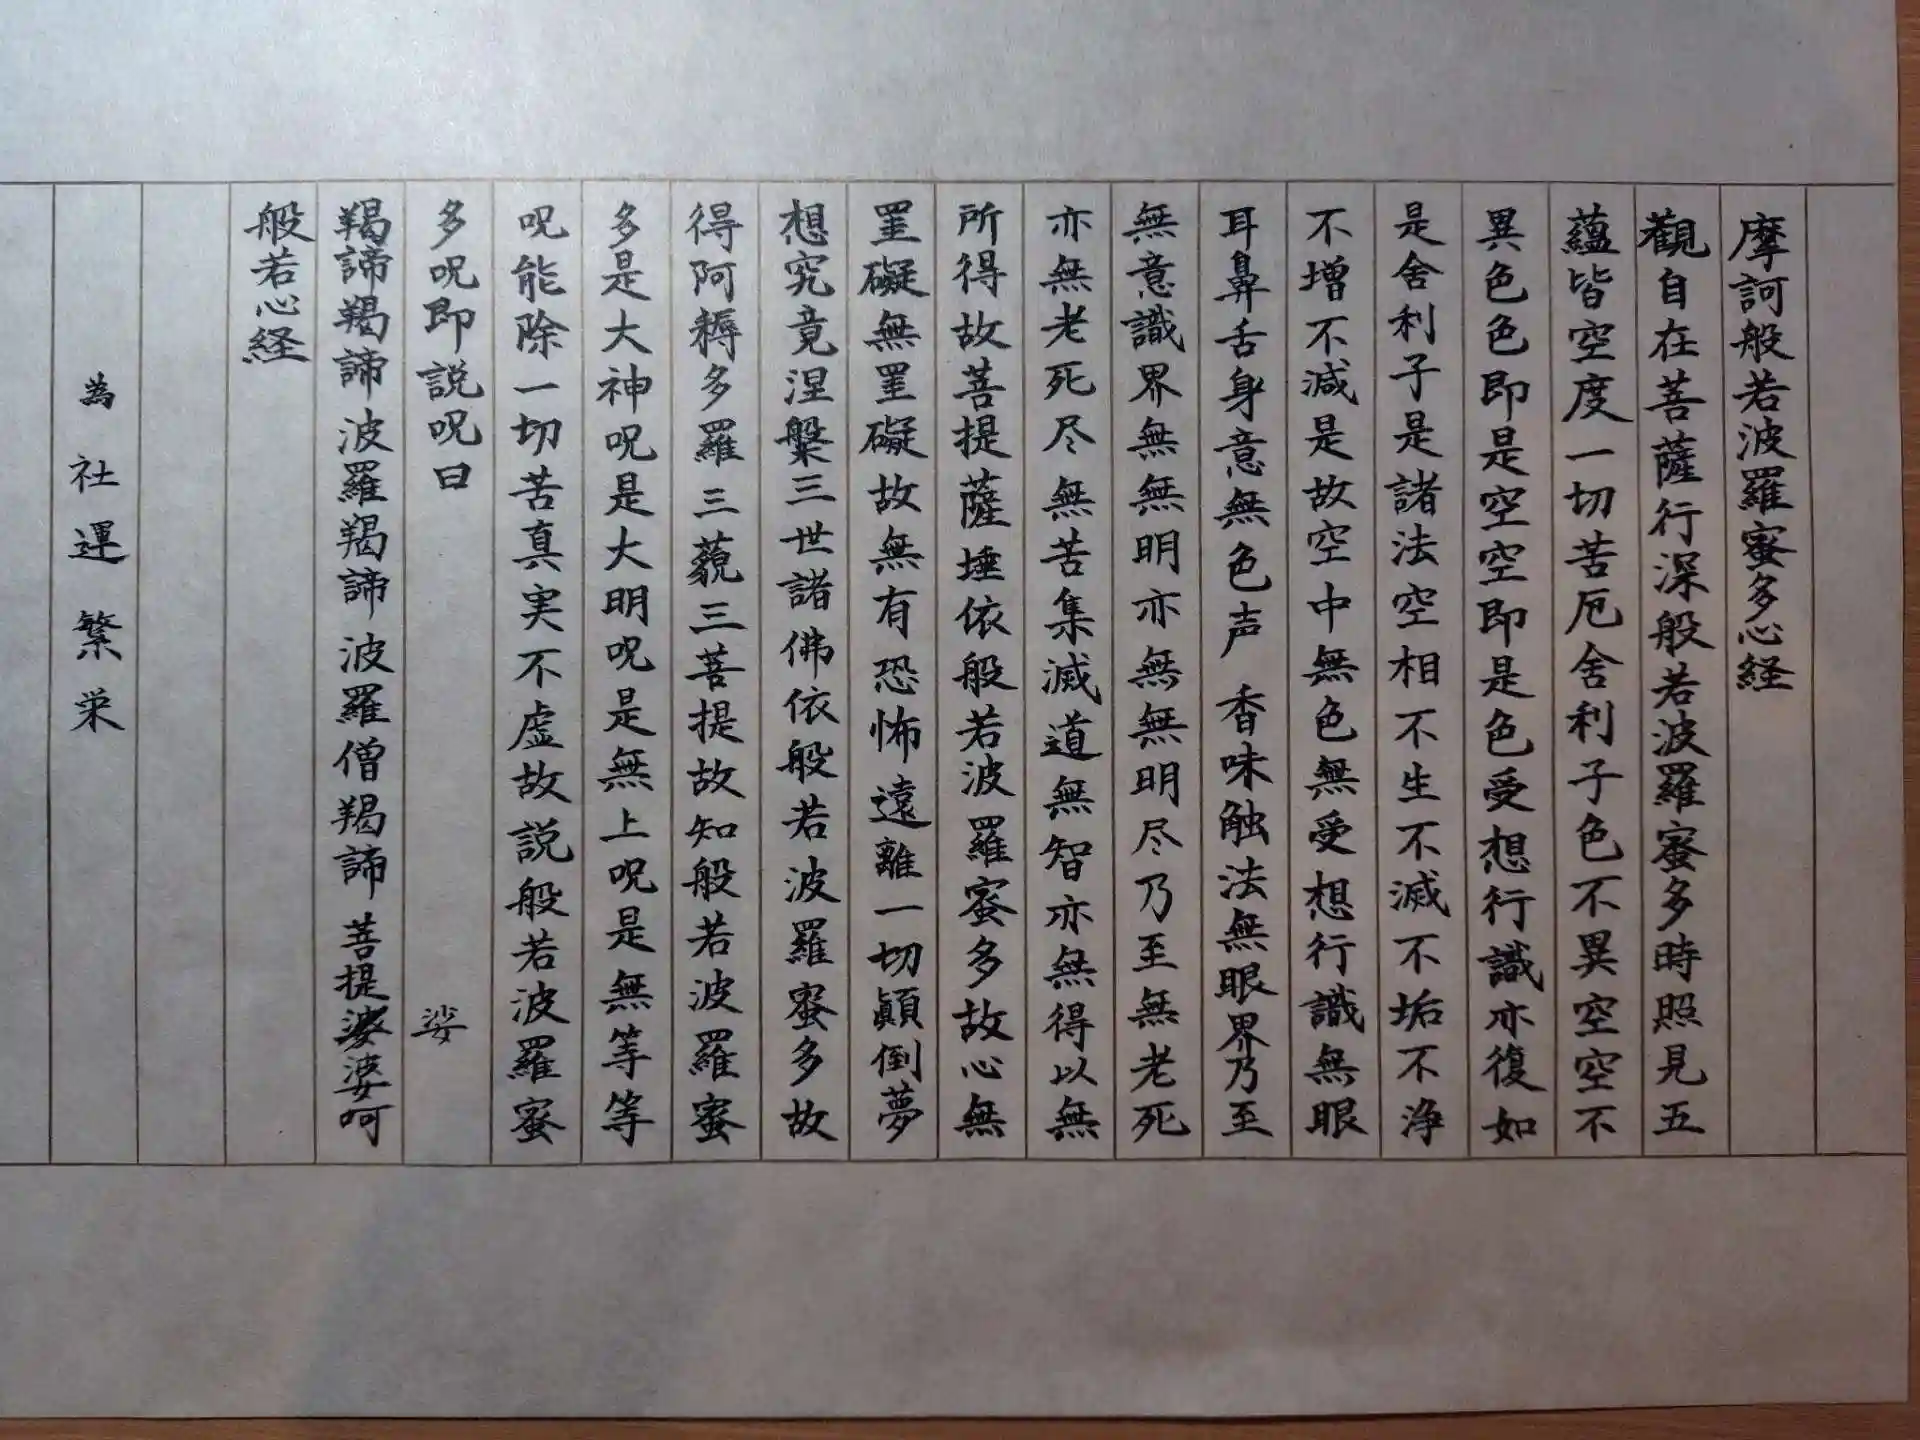 摩訶般若波羅蜜多心経
觀自在菩薩行深般若波羅蜜多時照見五
蘊皆空度一切苦厄舍利子色不異空空不
異色色即是空空即是色受想行識亦復如
是舍利子是諸法空相不生不滅不垢不浄
不増不減是故空中無色無受想行識無眼
耳鼻舌身意無色声香味触法無眼界乃至
無意識界無無明亦無無明尽乃至無老死
亦無老死尽無苦集滅道無智亦無得以無
所得故菩提薩埵依般若波羅蜜多故心無
罣礙無罣礙故無有恐怖遠離一切顛倒夢
想究竟涅槃三世諸佛依般若波羅蜜多故
得阿耨多羅三藐三菩提故知般若波羅蜜
多是大神呪是大明呪是無上呪是無等等
呪能除一切苦真実不虚故説般若波羅蜜
多呪即説呪曰
娑
羯諦羯諦波羅羯諦波羅僧羯諦菩提婆婆呵
般若心経
為社運繁栄